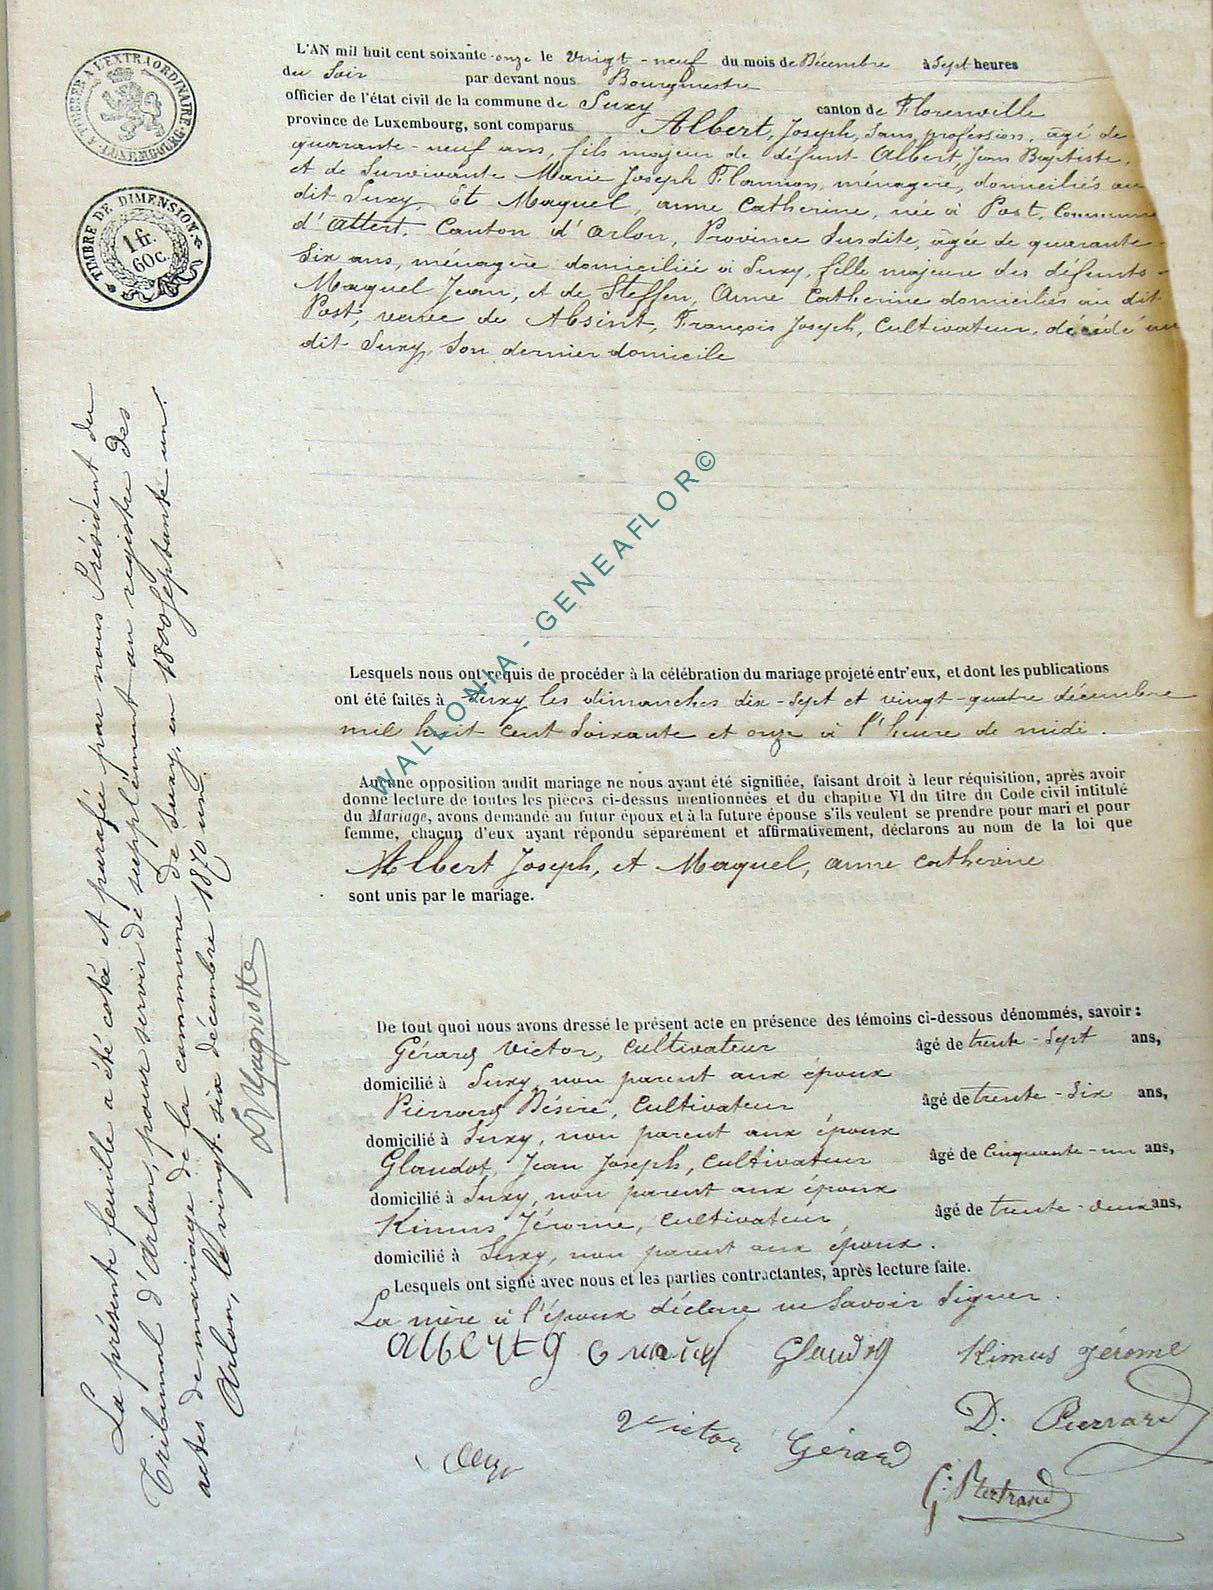 TIMBRER A L'EXTRAORDINAIRE
LUXEMBOURG
TIMBRE DE DIMENSION
1 fr.
60 c.
L'AN mil huit cent soixante-onze le vingt-neuf du mois de Décembre à Sept heures
du Soir par devant nous Bourgmestre
officier de l'état civil de la commune de Suxy canton de Florenville
province de Luxembourg, sont comparus Albert, Joseph, Sans profession, âgé de
quarante-neuf ans, fils majeur de défunt Albert, Jean Baptiste,
et de Survivante Marie Joseph Flamion, ménagère, domiciliés au
dit Suxy, Et Maquel, anne Catherine, née à Post, Commune
d'Attert, Canton d'Arlon, Province Susdite, âgée de quarante-
Six ans, ménagère domiciliée à Suxy, fille majeure des défunts
Maquel Jean, et de Steffen, Anne Catherine domiciliés au dit
Post, veuve de Absint, François Joseph, Cultivateur, décédé au
dit Suxy, Son dernier domicile
Lesquels nous ont requis de procéder à la célébration du mariage projeté entr'eux, et dont les publications
ont été faites à Suxy les dimanches dix-sept et vingt-quatre décembre
mil huit cent Soixante et onze à l'heure de midi.
Aucune opposition audit mariage ne nous ayant été signifiée, faisant droit à leur réquisition, après avoir
donné lecture de toutes les pièces ci-dessus mentionnées et du chapitre VI du titre du Code civil intitulé
du Mariage, avons demandé au futur époux et à la future épouse s'ils veulent se prendre pour mari et pour
femme, chacun d'eux ayant répondu séparément et affirmativement, déclarons au nom de la loi que
Albert Joseph, et Maquel, anne Catherine
sont unis par le mariage.
De tout quoi nous avons dressé le présent acte en présence des témoins ci-dessous dénommés, savoir:
Gérard Victor, Cultivateur âgé de trente-Sept ans,
domicilié à Suxy, non parent aux époux
Pierrard Désiré, Cultivateur âgé de trente-Six ans,
domicilié à Suxy, non parent aux époux
Glaudot, Jean Joseph, Cultivateur âgé de Cinquante-un ans,
domicilié à Suxy, non parent aux époux
Kimus Jérome, Cultivateur, âgé de trente-deux ans,
domicilié à Suxy, non parent aux époux.
Lesquels ont signé avec nous et les parties contractantes, après lecture faite.
La mère à l'époux déclare ne Savoir Signer.
Albert J Glaudot Kimus Jérome
Victor Gérard D. Pierrard
G. Bertrand
La présente feuille a été cotée et parafée par nous Président du
Tribunal d'Arlon, pour servir de supplément au registre des
actes de mariage de la commune de Suxy, en 1800 septante un.
Arlon, le vingt-six décembre 1870 un.
WALLONIA - GENEAFLOR©